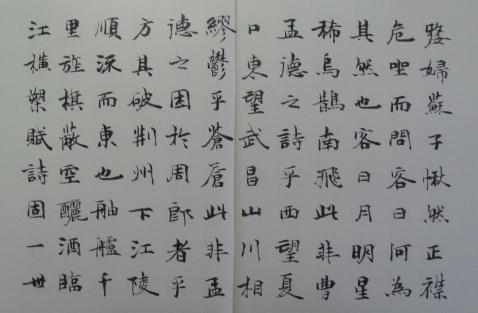 嫠婦蘇子愀然正襟
危坐而問客曰何為
其然也客曰月明星
稀烏鵲南飛此非曹
孟德之詩乎西望夏
口東望武昌山川相
繆鬱乎蒼蒼此非孟
德之困於周郎者乎
方其破荊州下江陵
順流而東也舳艫千
里旌旗蔽空釃酒臨
江橫槊賦詩固一世